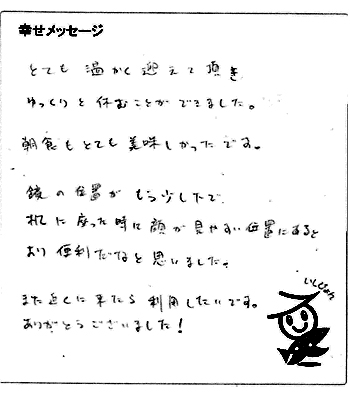 幸せメッセージ
とても 温かく 迎えて 頂き
ゆっくりと 休むことが できました。
朝食も とても 美味しかった です。
鏡の 位置が もう少し下で
机に 座った時に 顔が 見やすい 位置にあると
より 便利だなと 思いました。
また 近くに 来たら 利用したいです。
ありがとうございました!